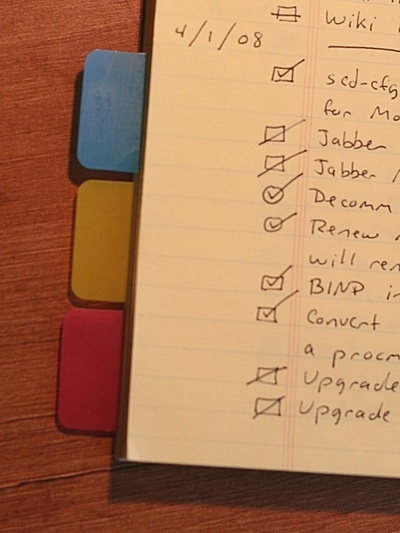 Wiki
4/1/08
scd-cfg
for Mo
Jabber
Jabber
Decomm
Renew
will ren
BIND i
Convert
a procm
Upgrade
Upgrade